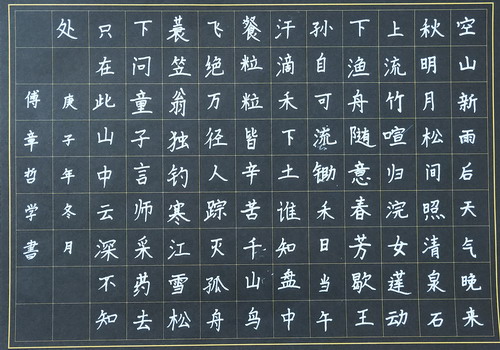 空山新雨后天气晚来
秋明月松间照清泉石
上流竹喧归浣女莲动
下渔舟随意春芳歇王
孙自可流锄禾日当午
汗滴禾下土谁知盘中
餐粒粒皆辛苦千山鸟
飞绝万径人踪灭孤舟
蓑笠翁独钓寒江雪松
下问童子言师采药去
只在此山中云深不知
处庚子年冬月
傅哲学書